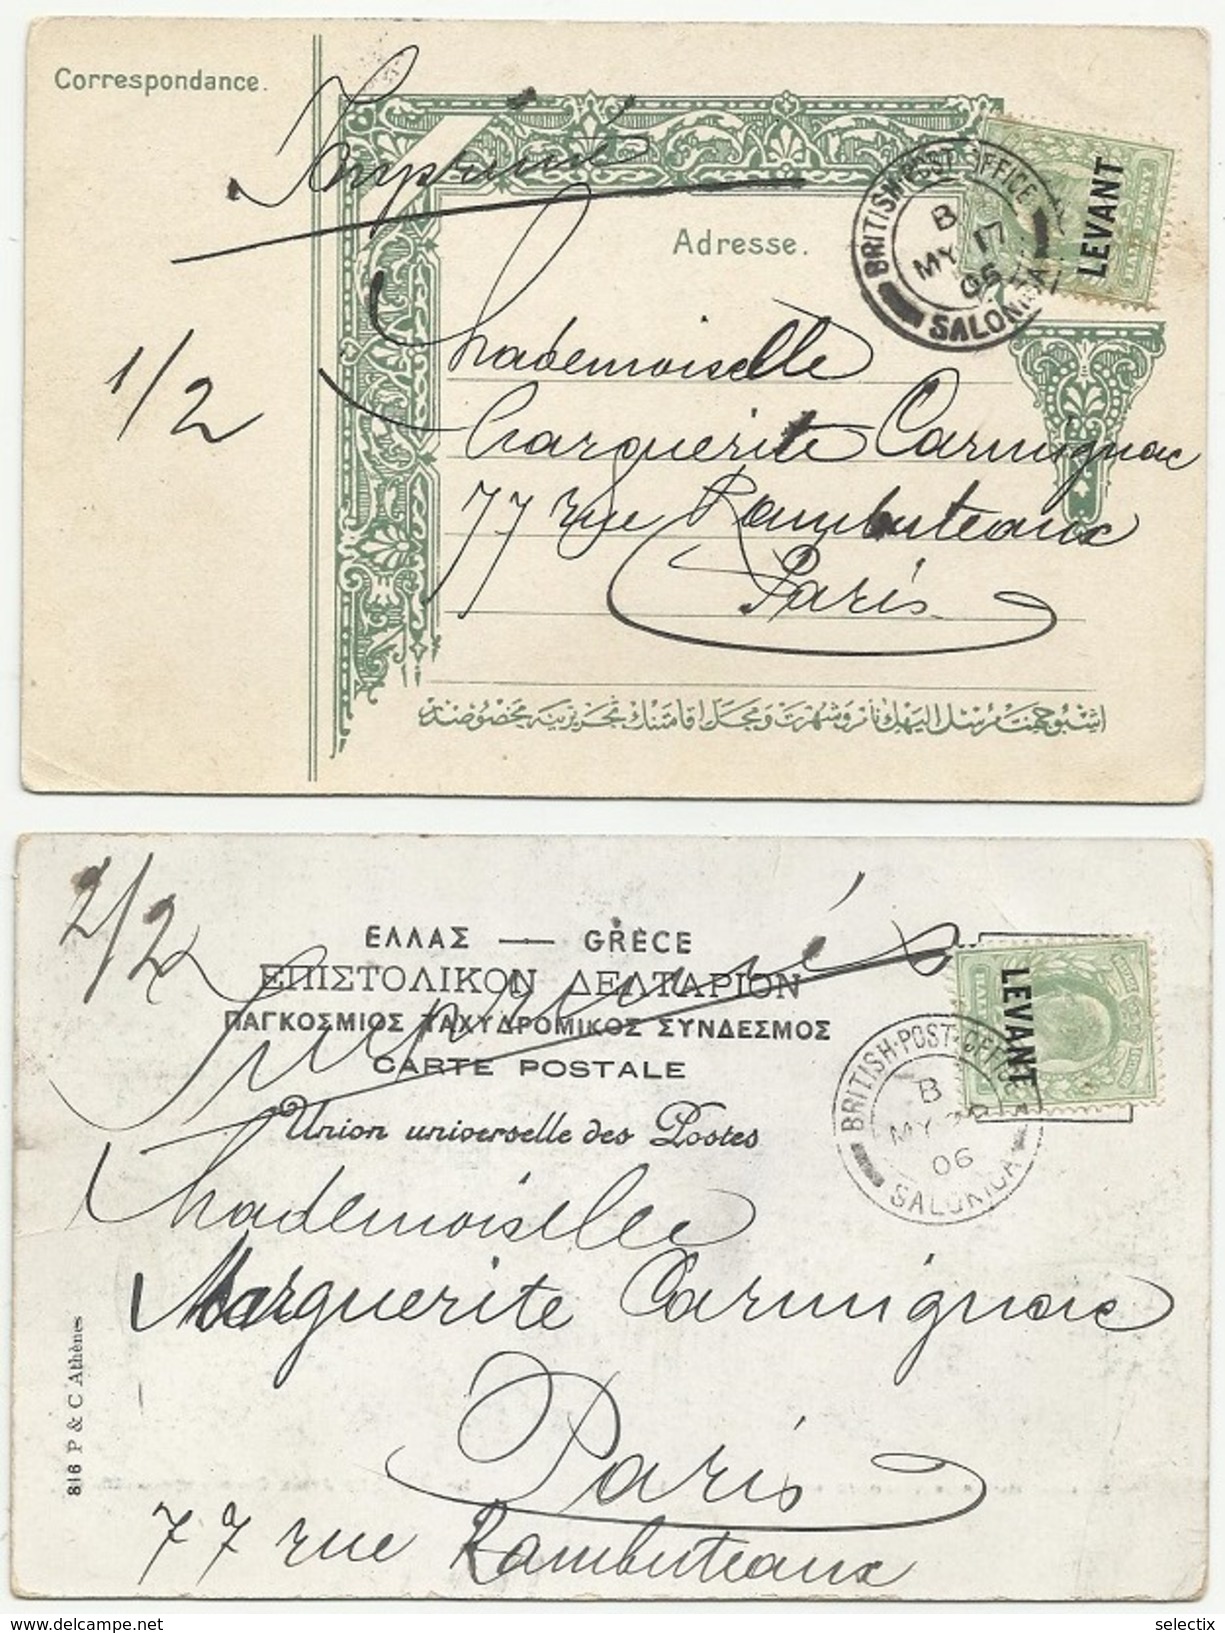 Correspondance.
Imprimé
Adresse.
BRITISH POST OFFICE
B
MY 17
06
SALONICA
LEVANT
1/2
Mademoiselle
Marguerite Carmignac
77 rue Rambuteaux
Paris
2/2
ΕΛΛΑΣ — GRÈCE
ΕΠΙΣΤΟΛΙΚΟΝ ΔΕΛΤΑΡΙΟΝ
ΠΑΓΚΟΣΜΙΟΣ ΤΑΧΥΔΡΟΜΙΚΟΣ ΣΥΝΔΕΣΜΟΣ
CARTE POSTALE
Union universelle des Postes
Imprimé
LEVANT
BRITISH·POST·OFFICE
B
MY
06
SALONICA
Mademoiselle
Marguerite Carmignac
Paris
77 rue Rambuteaux
816 P & C Athènes
delcampe.net
selectix